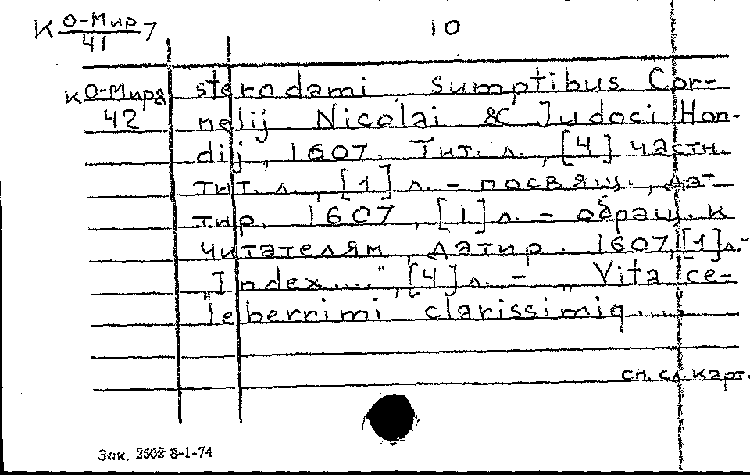 К О-Мир/41 7 10
К О-Мир8/42 sterodami, sumptibus Cor-
nelij Nicolai & Judoci Hon-
dij, 1607. Тит. л., [4] частн.
тит. л., [1] л. - посвящ., да-
тир. 1607, [1] л. - обращ. к
читателям датир. 1607, [1] л.-
„Index...", [4] л. - „Vita ce-
leberrimi clarissimiq....
см. сл. карт.
Зак. 3502 8-1-74